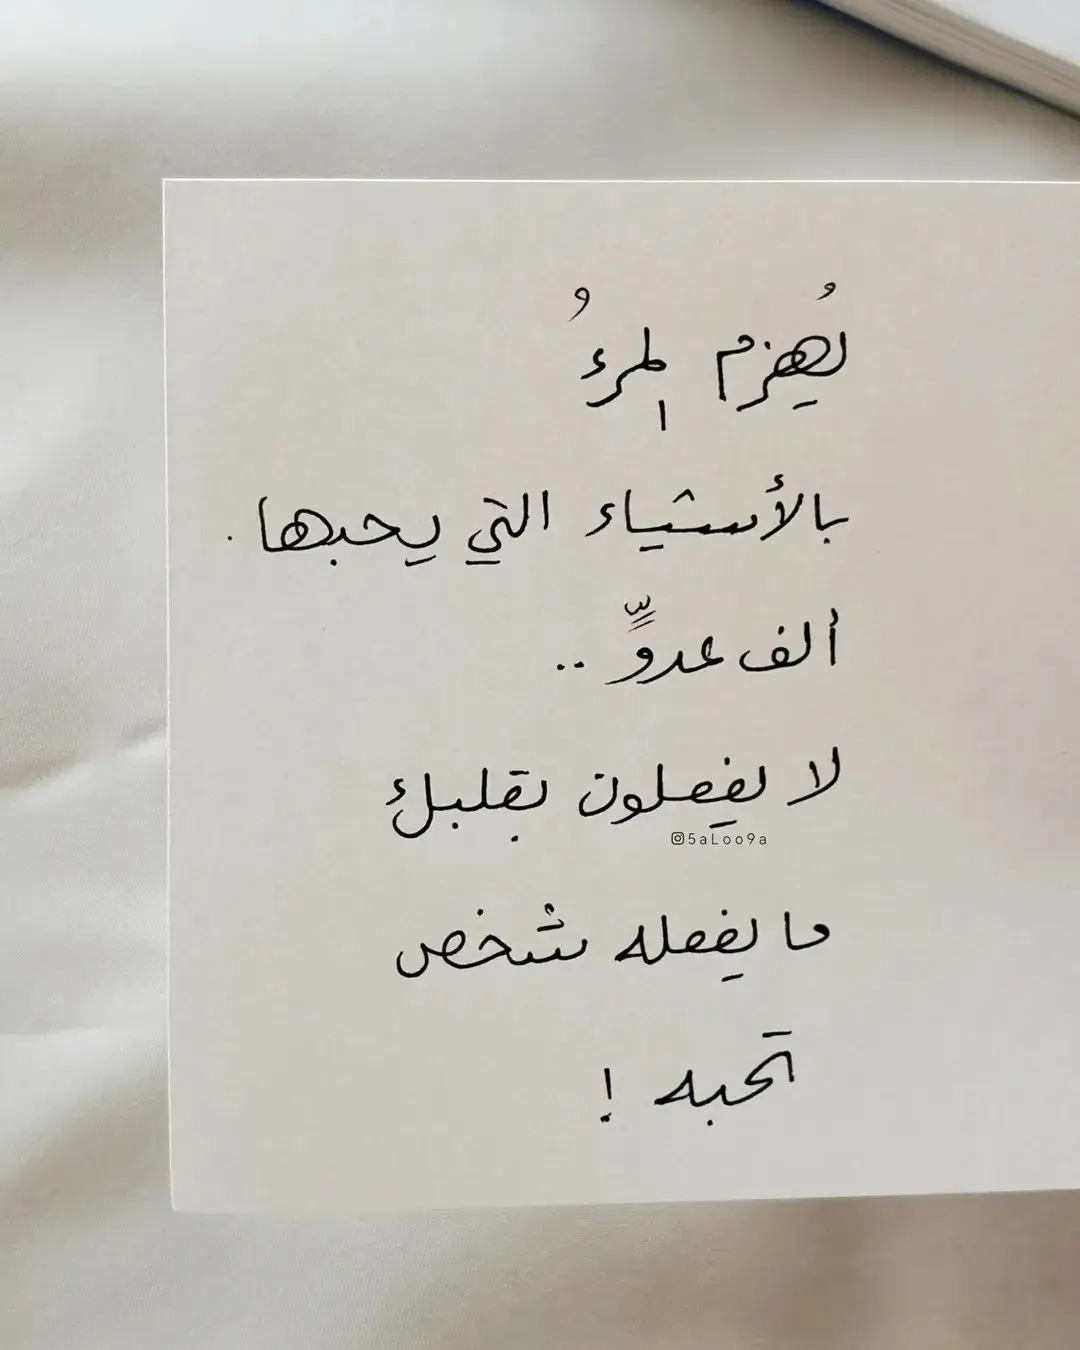 يُهزم المرءُ
بالأشياء التي يحبها .
ألف عدوٍّ ..
لا يفعلون بقلبك
5aLoo9a
ما يفعله شخص
تحبه !